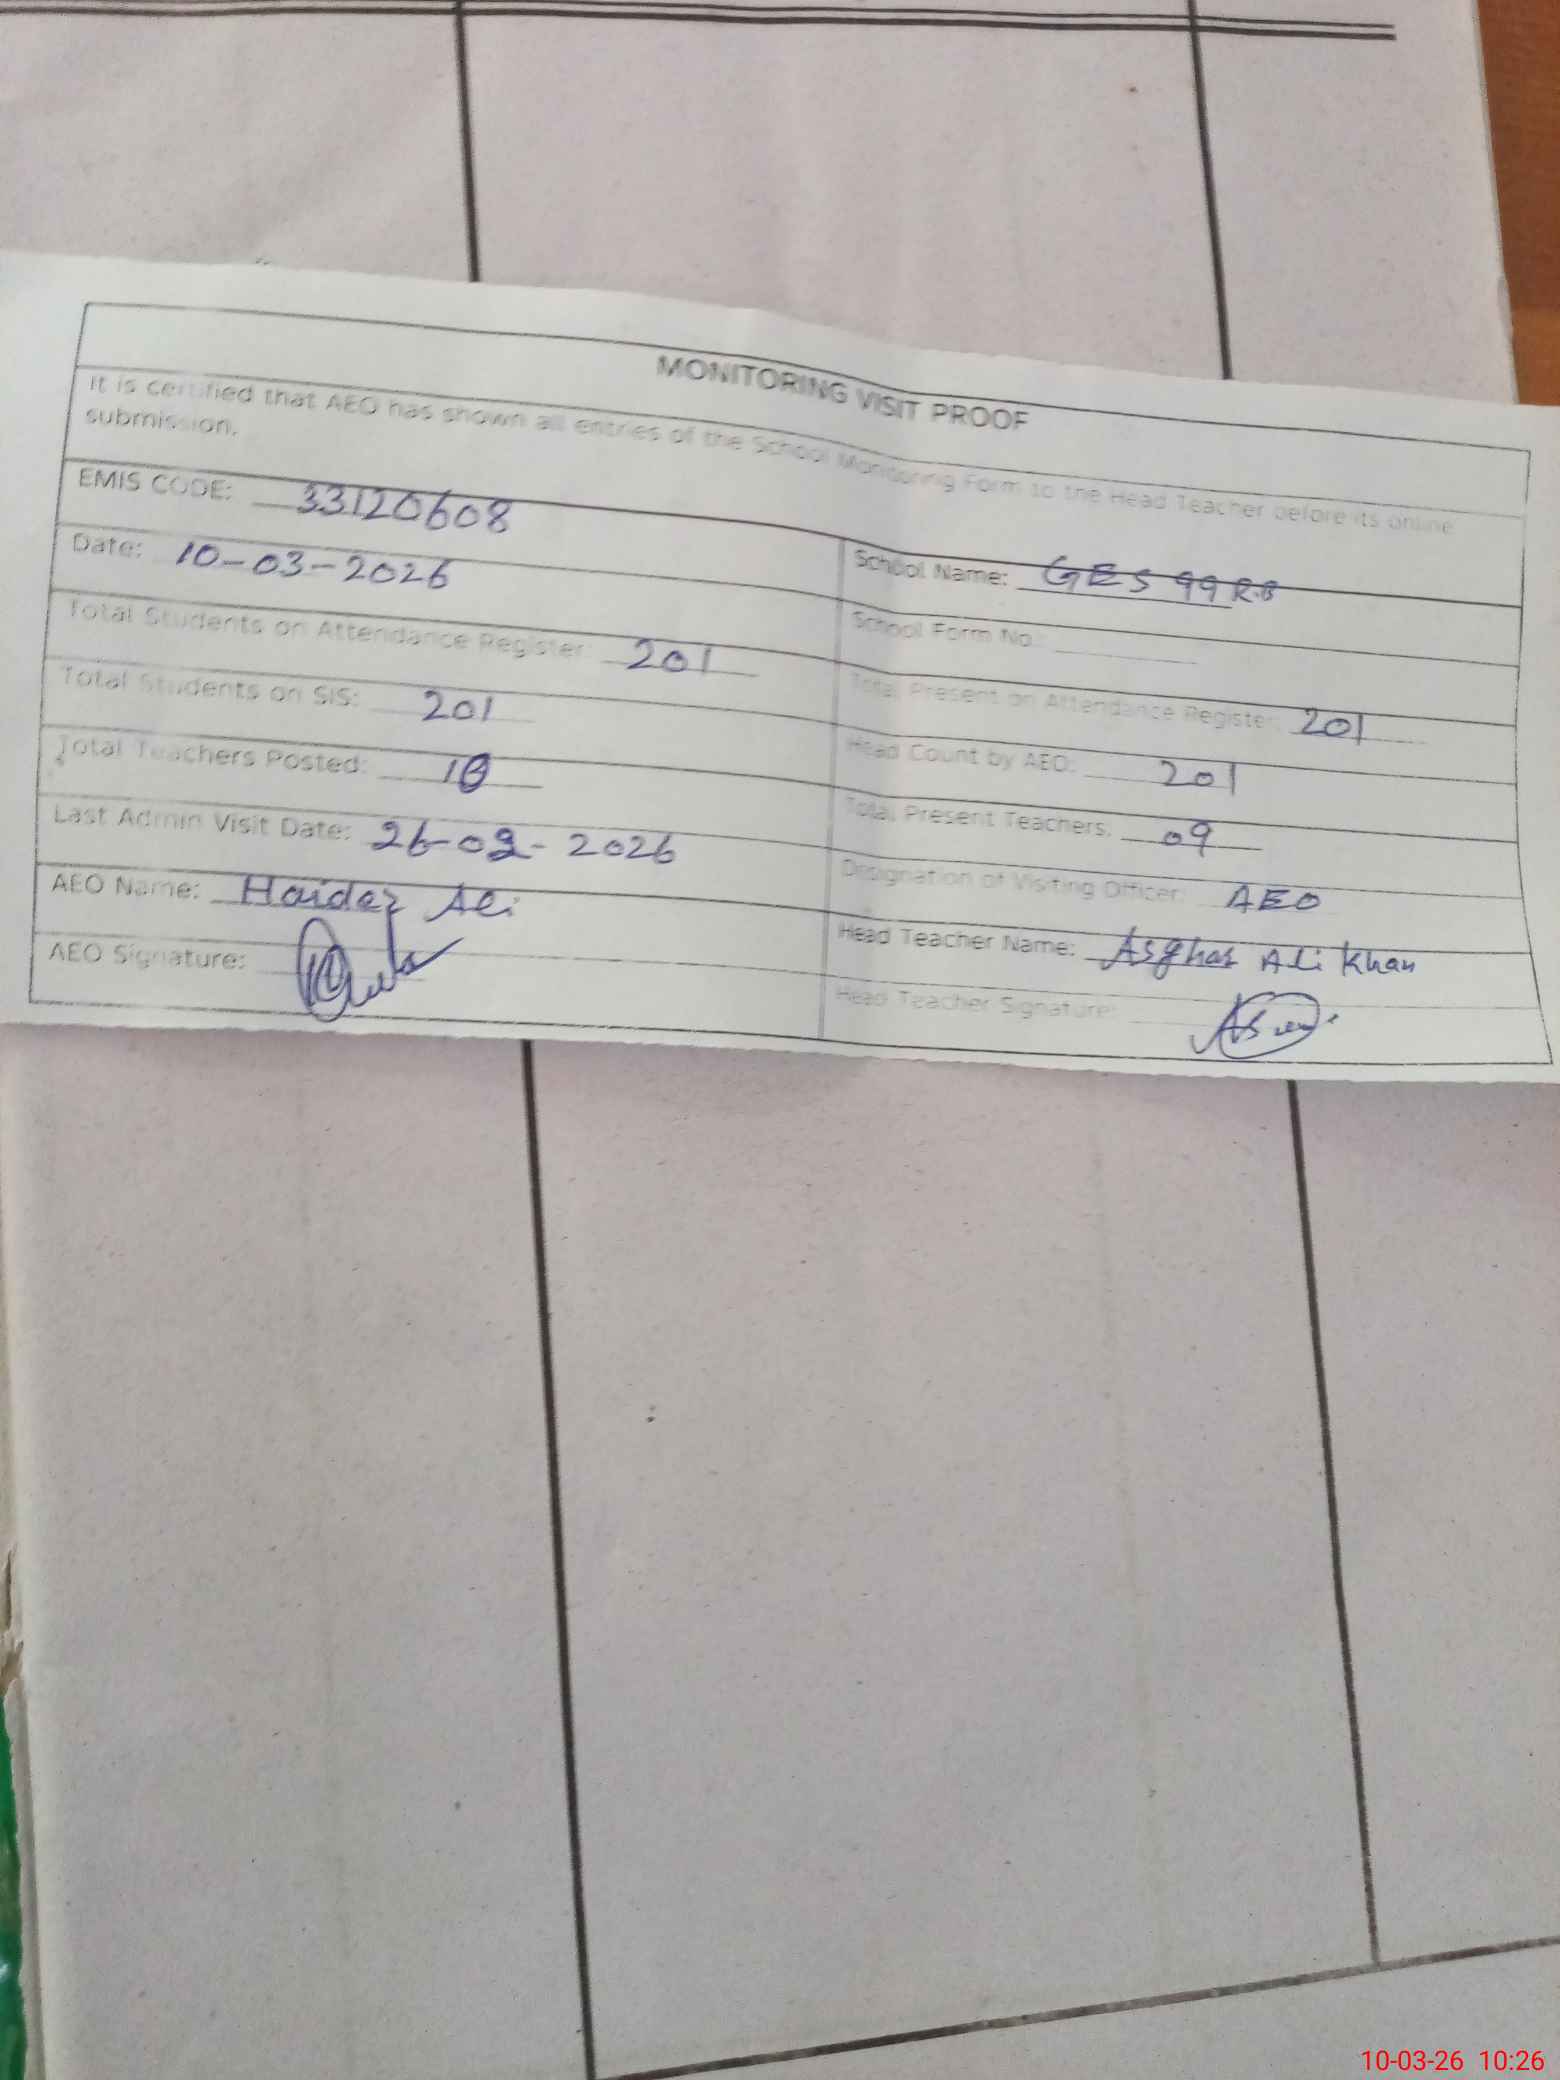 MONITORING VISIT PROOF
It is certified that AEO has shown all entries of the School Monitoring Form to the Head Teacher before its online
submission.
EMIS CODE: 33120608
School Name: GES 99 R.B
Date: 10-03-2026
School Form No.:
Total Students on Attendance Register: 201
Total Present on Attendance Register: 201
Total Students on SIS: 201
Head Count by AEO: 201
Total Teachers Posted: 10
Total Present Teachers: 09
Last Admin Visit Date: 26-02-2026
Designation of Visiting Officer: AEO
AEO Name: Haider Ali
Head Teacher Name: Asghar Ali Khan
AEO Signature:
Head Teacher Signature:
10-03-26 10:26